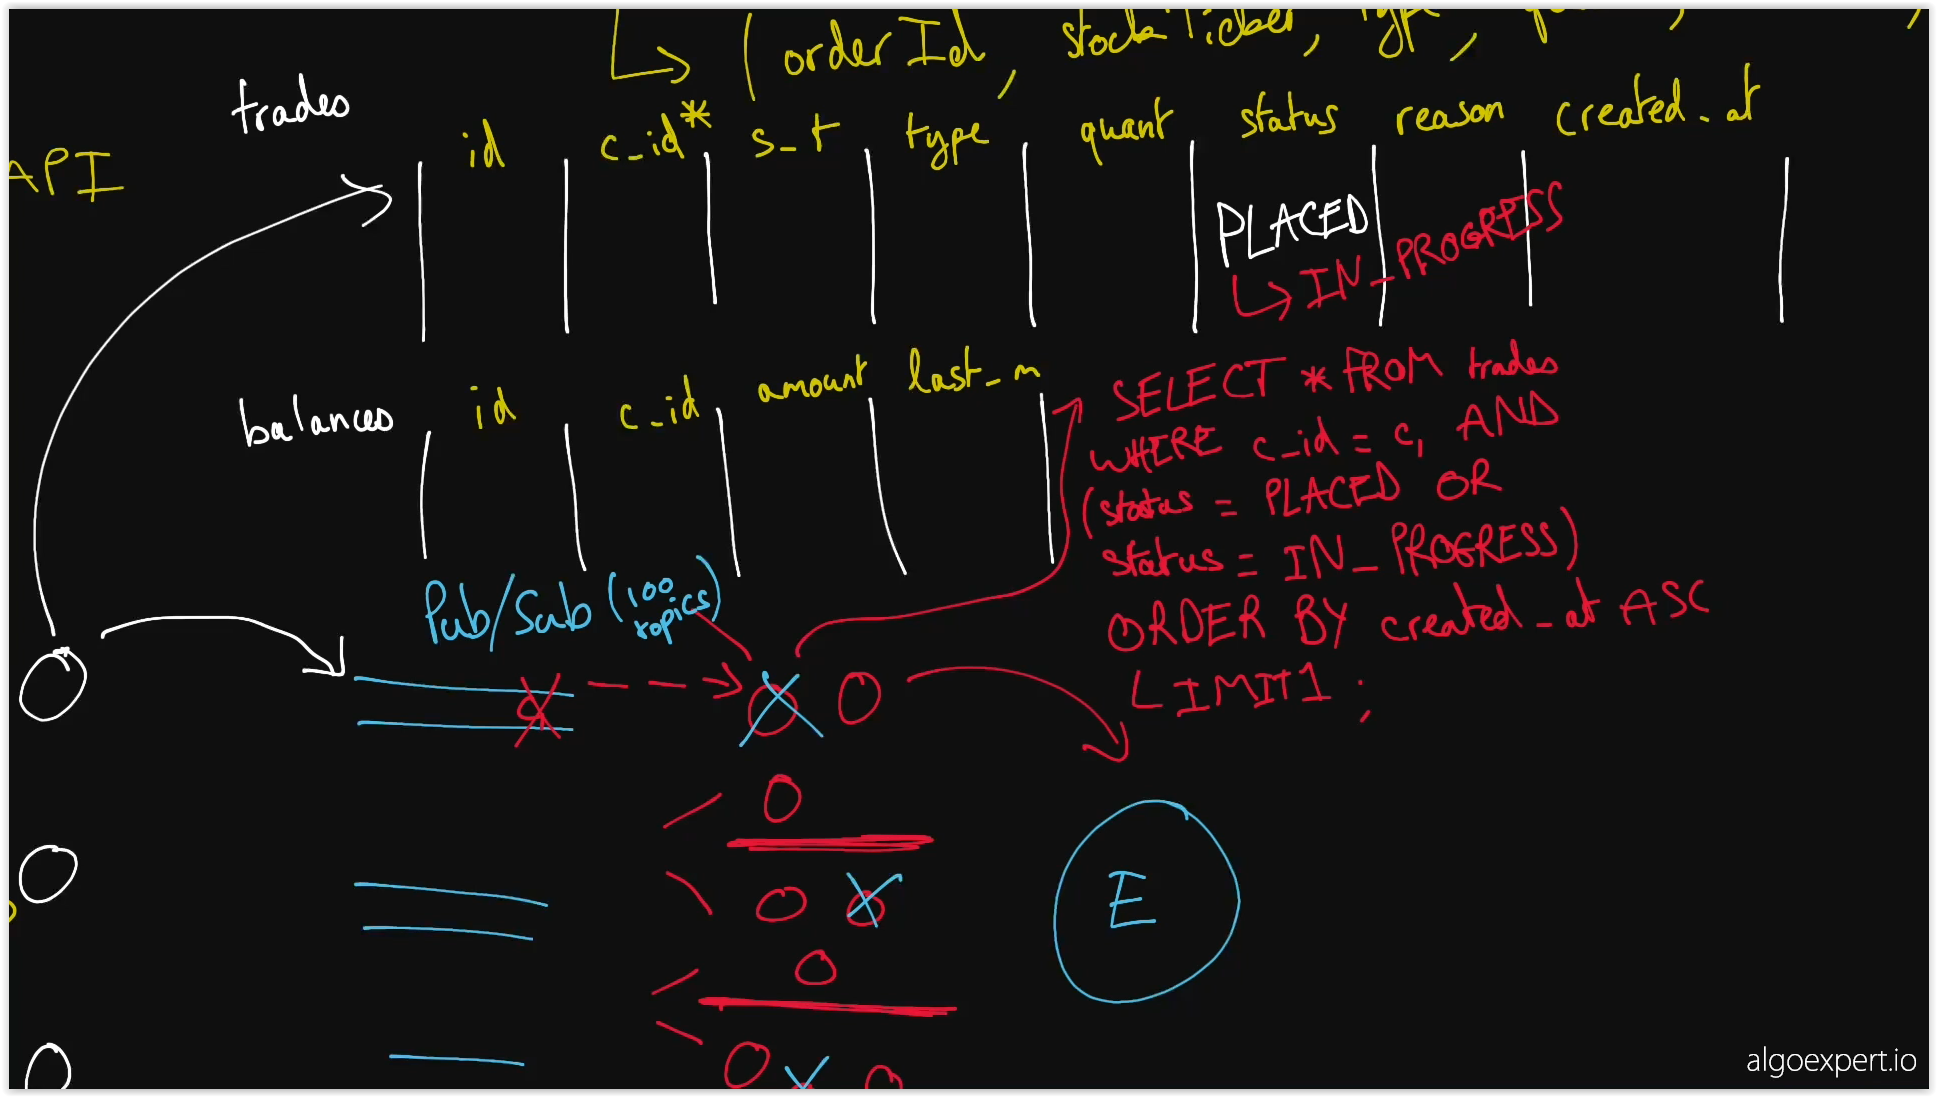 ( orderId, stockTicker, type,
trades
id c_id* s_t type quant status reason created_at
API
PLACED
↳ IN_PROGRESS
balances id c_id amount last_m
SELECT * FROM trades
WHERE c_id = c, AND
(status = PLACED OR
status = IN_PROGRESS)
ORDER BY created_at ASC
LIMIT 1 ;
Pub/Sub (100
topics)
E
algoexpert.io